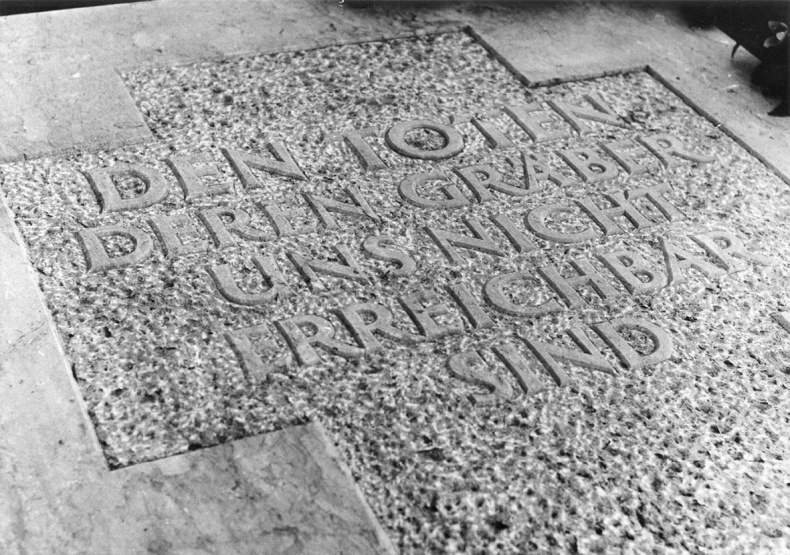 DEN TOTEN
DEREN GRÄBER
UNS NICHT
ERREICHBAR
SIND